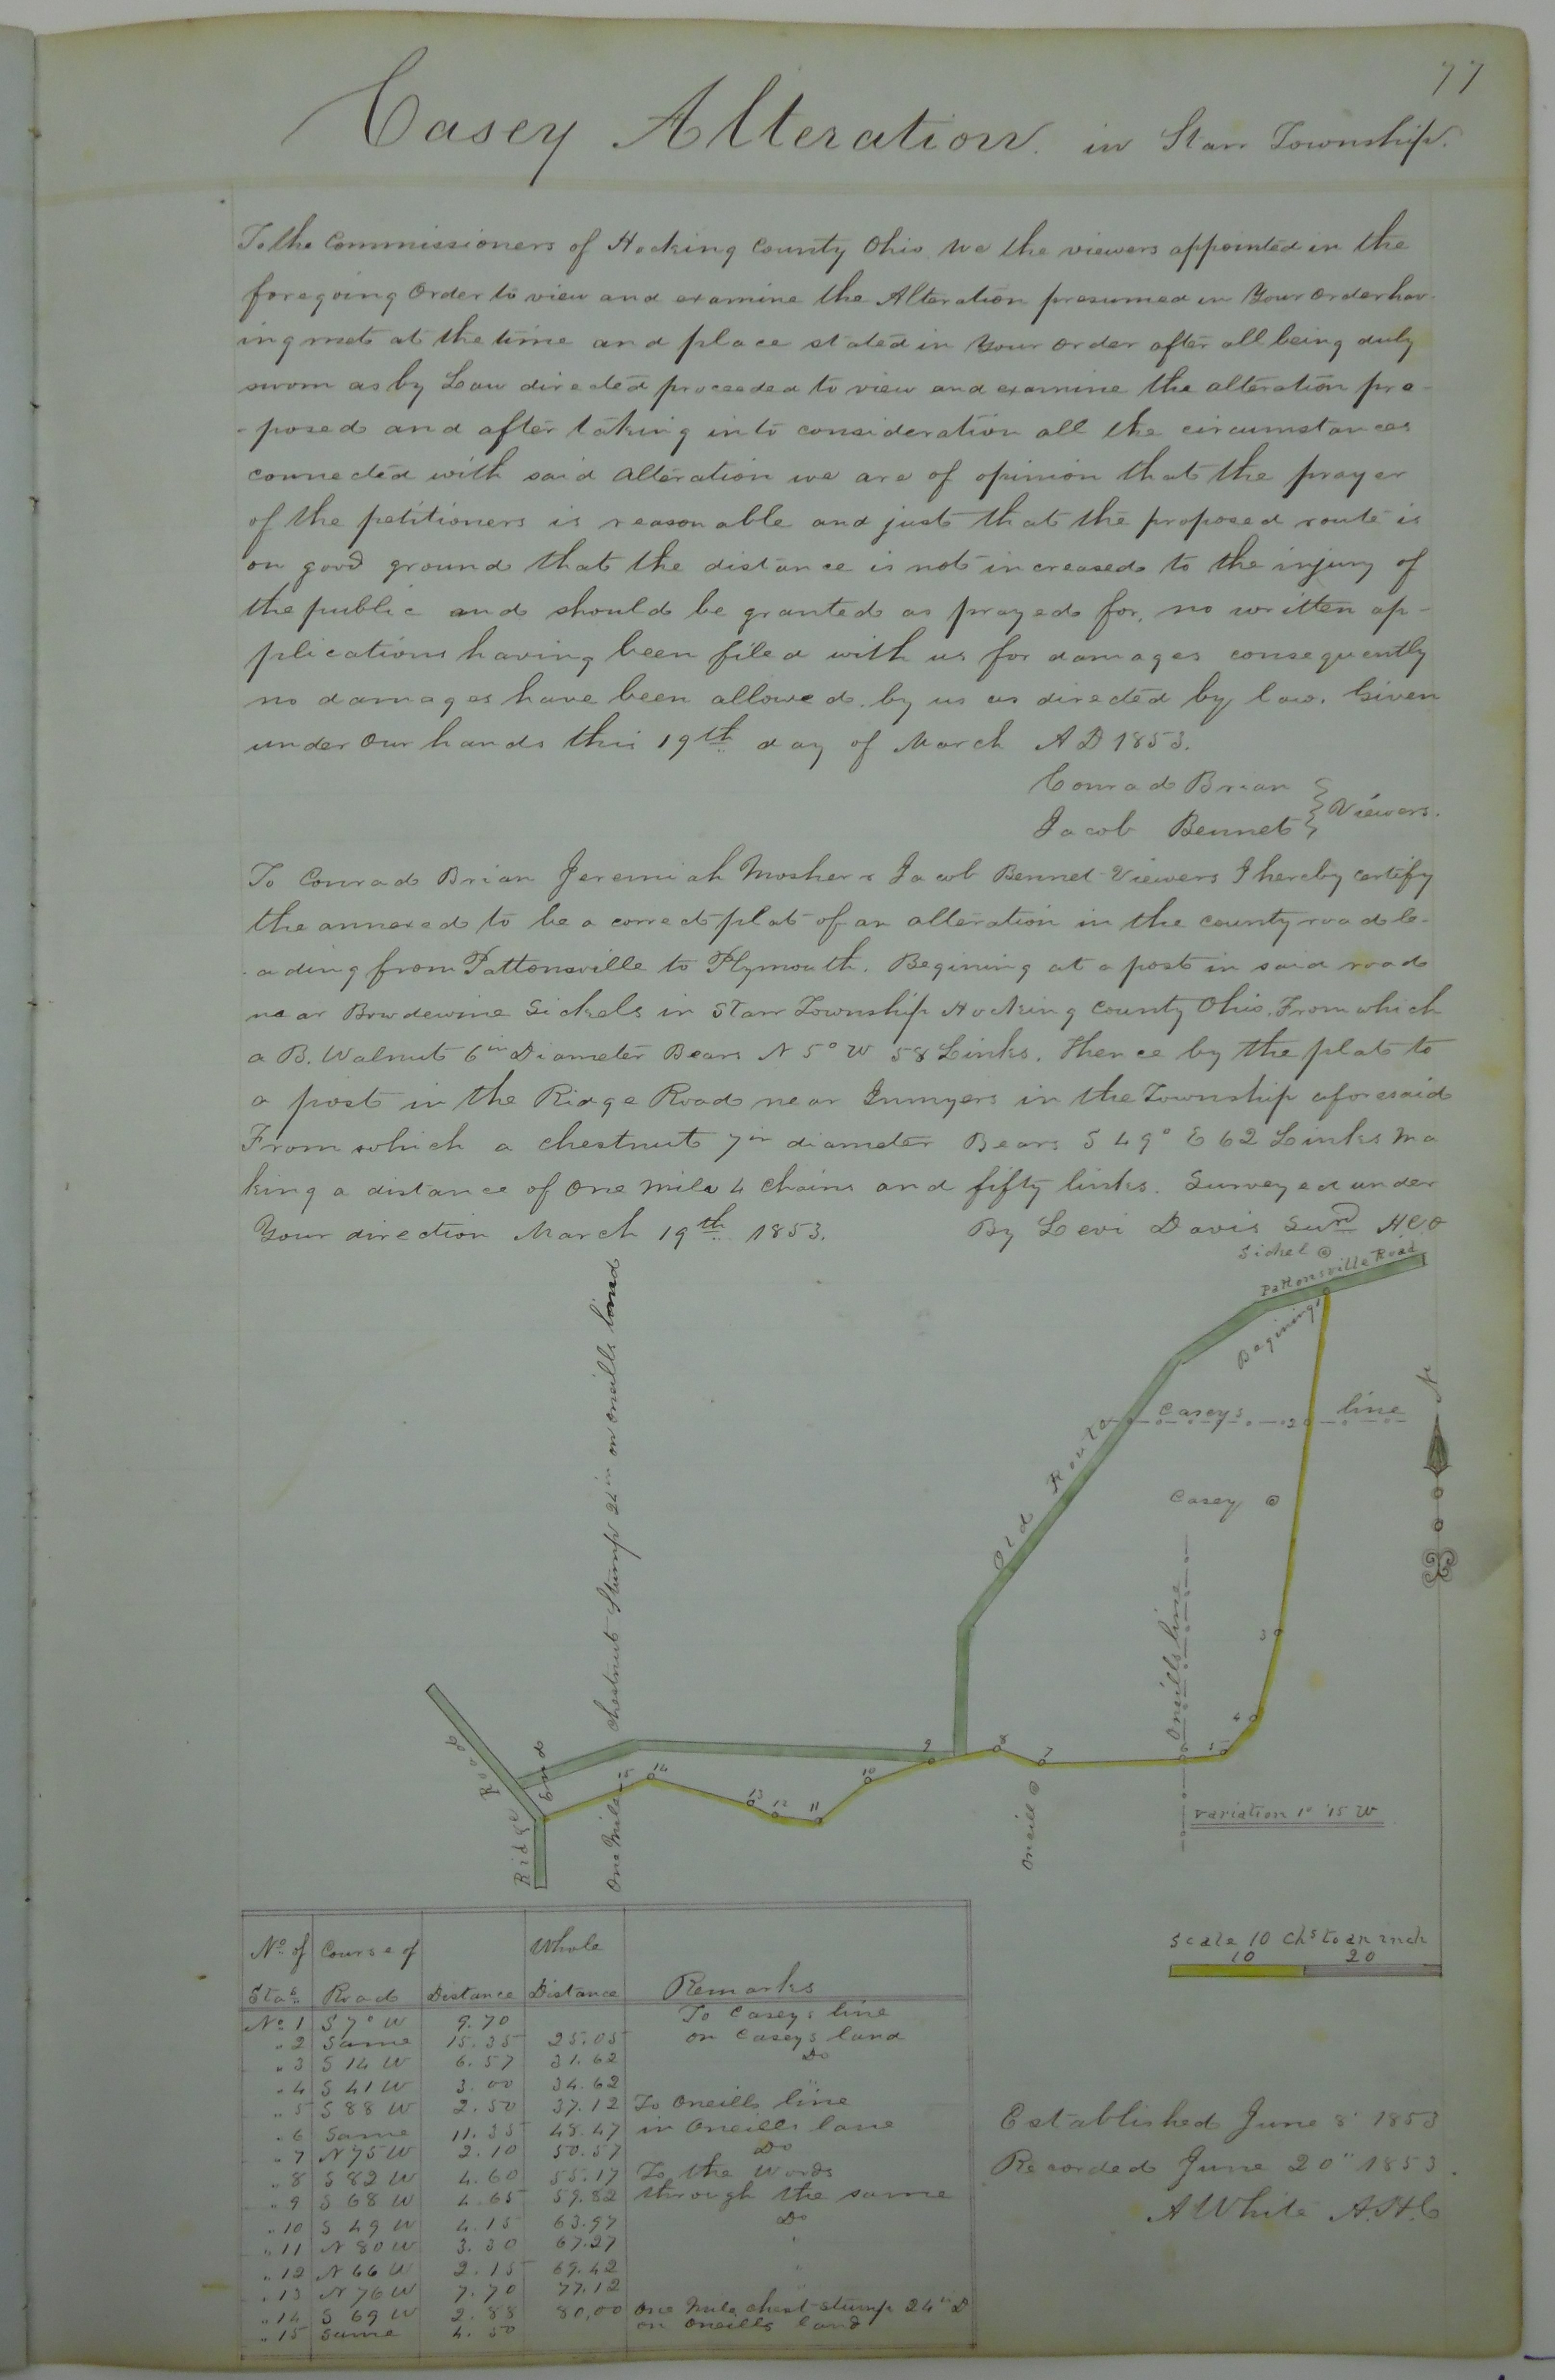 77
Casey Alteration. in Starr Township.
To the Commissioners of Hocking County Ohio We the viewers appointed in the
foregoing Order to view and examine the Alteration presumed in Your Order hav-
ing met at the time and place stated in Your Order after all being duly
sworn as by Law directed proceeded to view and examine the alteration pro-
-posed and after taking into consideration all the circumstances
connected with said Alteration we are of opinion that the prayer
of the petitioners is reasonable and just that the proposed route is
on good ground that the distance is not increased to the injury of
the public and should be granted as prayed for, no written ap-
plications having been filed with us for damages consequently
no damages have been allowed by us as directed by law. Given
under Our hands this 19th day of March AD 1853.
Conrad Brian
Jacob Bennet } Viewers.
To Conrad Brian Jeremiah Mosher & Jacob Bennet Viewers I hereby certify
the annexed to be a correct plat of an alteration in the county road le-
-ading from Pattonsville to Plymouth. Begining at a post in said road
near Bowdewine Sickels in Starr Township Hocking County Ohio. From which
a B. Walnut 6in Diameter Bears N 5° W 58 Links. Thence by the plat to
a post in the Ridge Road near Inmyers in the Township aforesaid
From which a chestnut 7in diameter Bears S 49° E 62 Links Ma
king a distance of One Mile 4 Chains and fifty links. Surveyed under
Your direction March 19th 1853. By Levi Davis Surd H.C.O
Sickel
Pattonsville Road
Begining
1
Caseys line
2
Old Route
Casey
N
Oneills line
3
4
5
6
7
8
9
10
11
12
13
14
15
Oneill
variation 1° 15 W
chestnut Stump 24in on oneills land
One Mile
End
Ridge Road
Scale 10 Chs to an inch
10 20
No of Stas Course of Road Distance Whole Distance Remarks
No 1 S 7° W 9.70 To Caseys line
" 2 Same 15.35 25.05 on Caseys land
" 3 S 14 W 6.57 31.62 Do
" 4 S 41 W 3.00 34.62 "
" 5 S 88 W 2.50 37.12 To Oneills line
" 6 Same 11.35 48.47 in Oneills lane
" 7 N 75 W 2.10 50.57 Do
" 8 S 82 W 4.60 55.17 To the Words
" 9 S 68 W 4.65 59.82 through the same
" 10 S 49 W 4.15 63.97 Do
" 11 N 80 W 3.30 67.27 "
" 12 N 66 W 2.15 69.42 "
" 13 N 76 W 7.70 77.12 "
" 14 S 69 W 2.88 80,00 One Mile, chest stump 24in D
" 15 Same 4.50 on Oneills land
Established June 8" 1853
Recorded June 20" 1853.
A White A.H.C